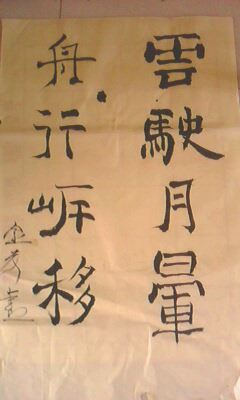 雲駛月暈
舟行岸移